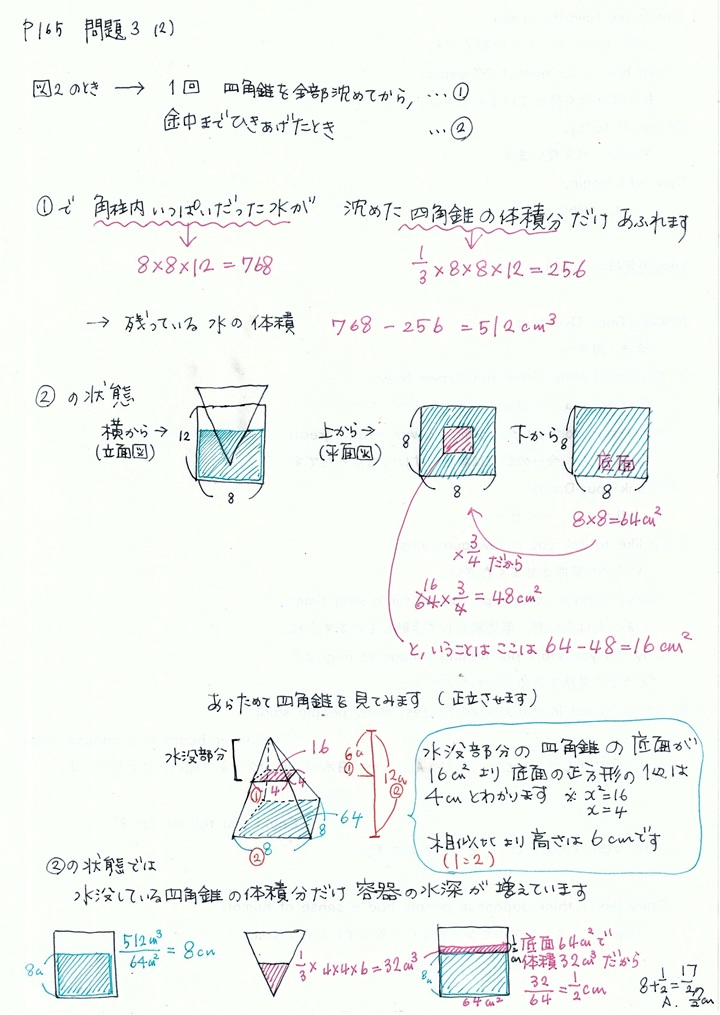 P165 問題3 (2)
図2のとき → 1回 四角錐を全部沈めてから, …①
途中までひきあげたとき …②
①で 角柱内いっぱいだった水が 沈めた四角錐の体積分だけ あふれます
8×8×12=768 1/3×8×8×12=256
→ 残っている水の体積 768-256=512cm³
②の状態
横から→
(立面図)
12
8
上から→
(平面図)
8
8
下から
8
底面
8
8×8=64cm²
×3/4 だから
16
64×3/4=48cm²
と,いうことは ここは 64-48=16cm²
あらためて四角錐を見てみます (正立させます)
水没部分
16
4
4
①
64
8
8
②
6cm
①
12cm
②
水没部分の四角錐の底面が
16cm²より 底面の正方形の1辺は
4cmとわかります ※ x²=16
x=4
相似比より高さは6cmです
(1:2)
②の状態では
水没している四角錐の体積分だけ 容器の水深が 増えています
8cm
512cm³/64cm²=8cm
1/3×4×4×6=32cm³
8cm
64cm²
1/2cm
底面64cm²で
体積32cm³だから
32/64=1/2cm
8+1/2=17/2
A. 17/2cm